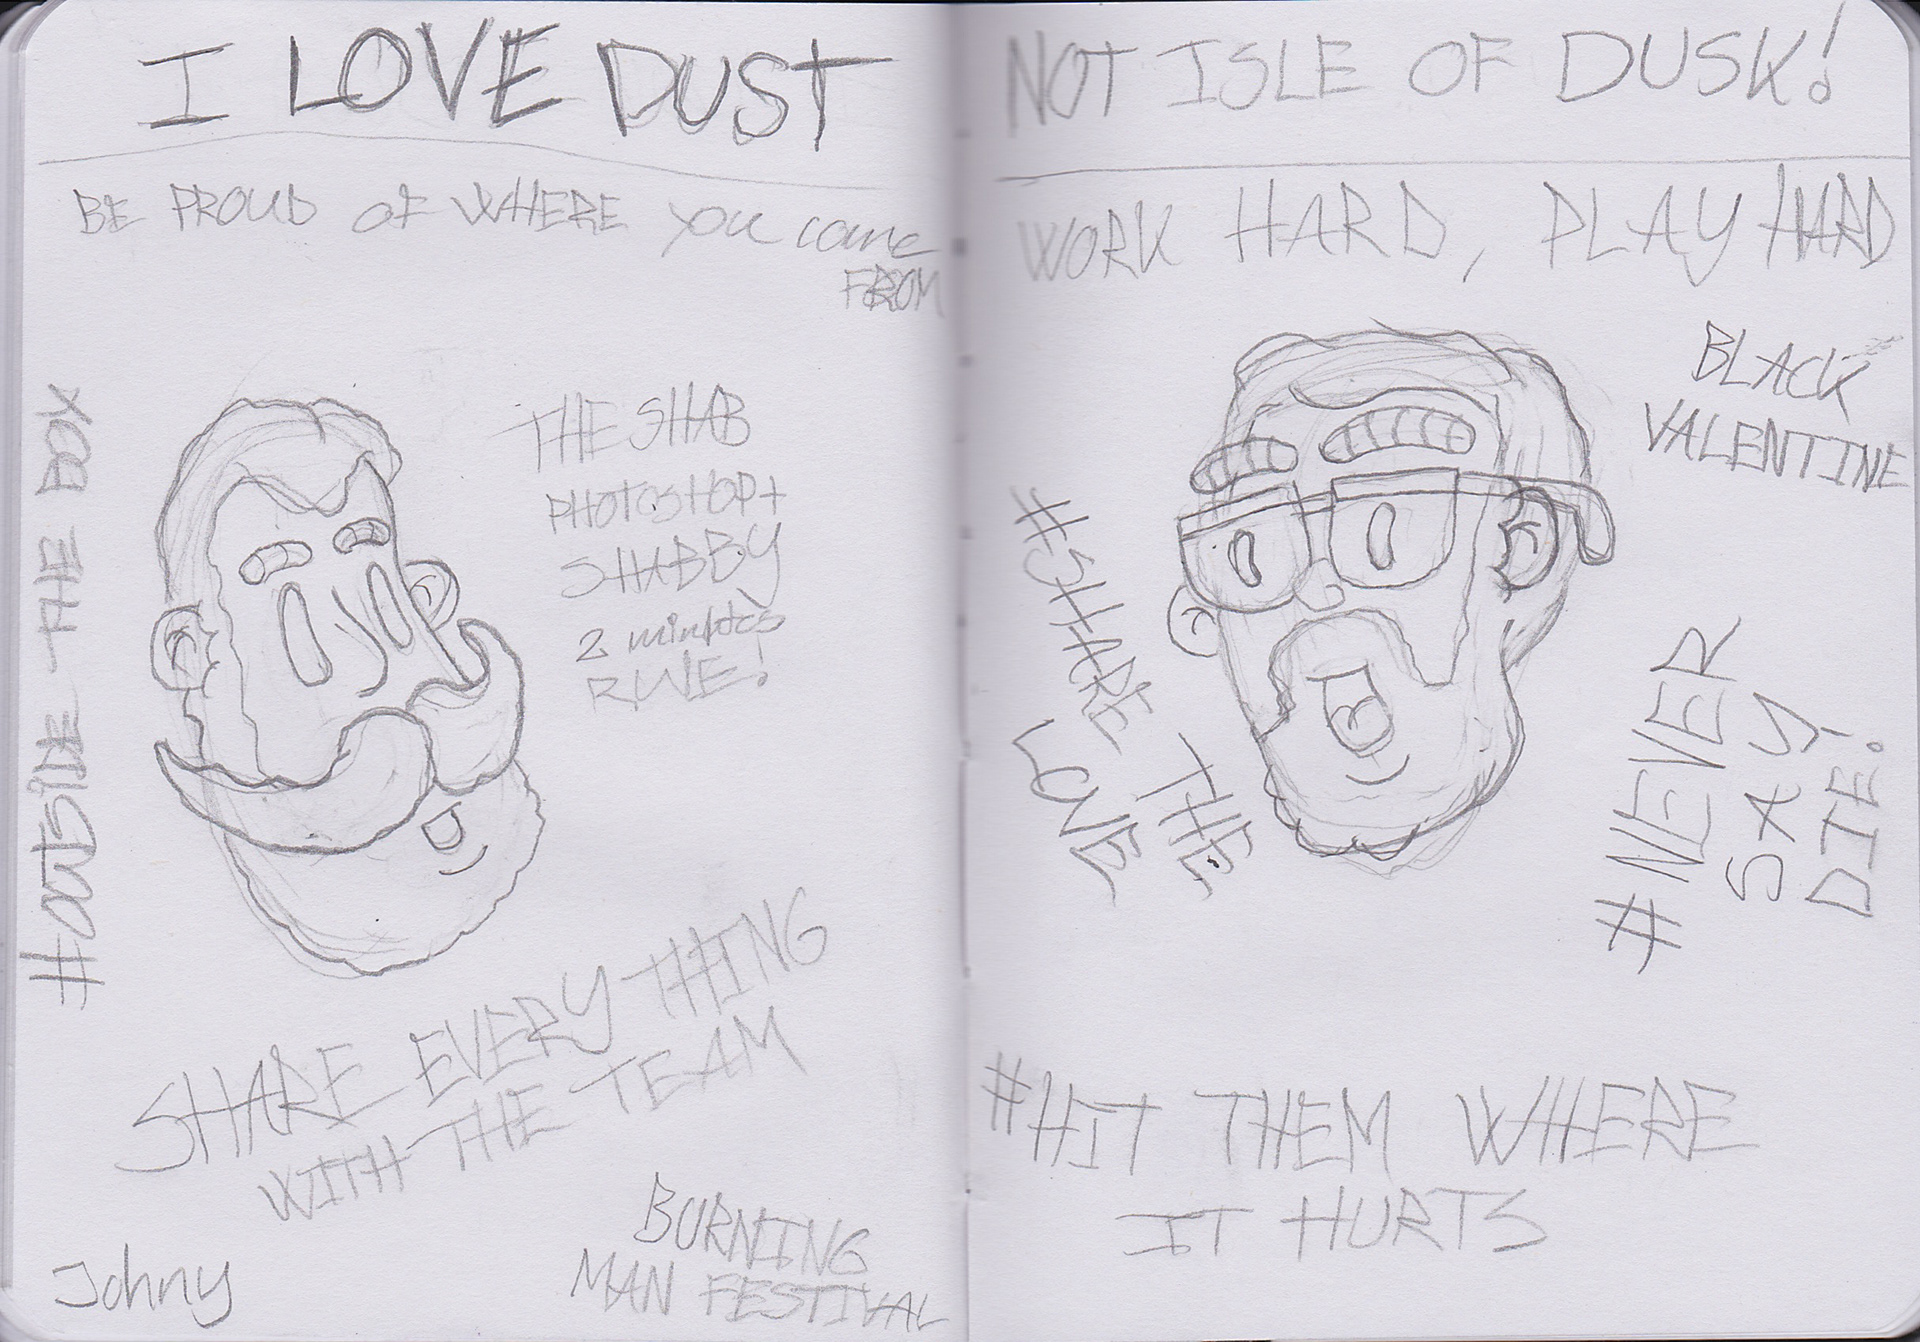 I LOVE DUST
BE PROUD OF WHERE you came
FROM
THE SHAB
PHOTOSHOP +
SHABBY
2 minutes
RULE!
#OUTSIDE THE BOX
SHARE EVERYTHING
WITH THE TEAM
BURNING
MAN FESTIVAL
Johny
NOT ISLE OF DUSK!
WORK HARD, PLAY HARD
BLACK
VALENTINE
#SHARE
THE
LOVE
#NEVER
SAY
DIE!
#HIT THEM WHERE
IT HURTS